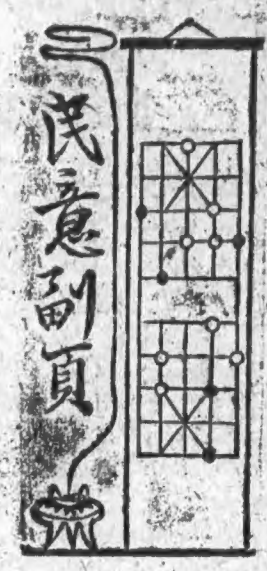 民意副頁